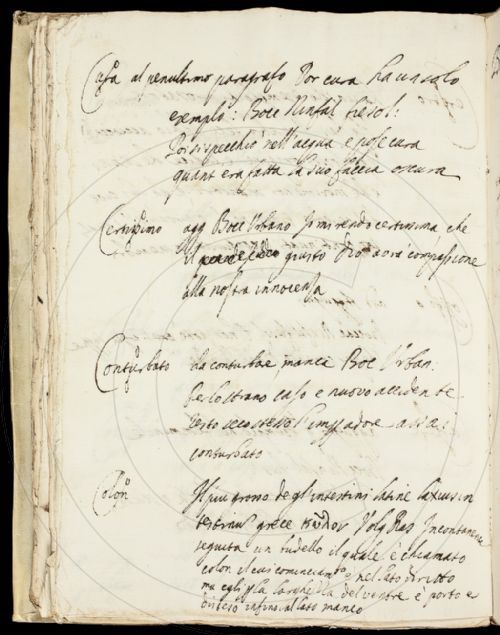 Cura al penultimo paragrafo Por cura ha un solo
esempio: Bocc Ninfal Fiesol:
Poi si specchiò nell'acqua e pose cura
quant'era fatta la suo faccia oscura
Certissimo agg Bocc Urbano Io mi rendo certissima che
il giusto Dio avrà compassione
alla nostra innocenza
Conturbato ha conturbae manca Boc Urban:
per lo strano caso e nuovo accidente
resto seco stesso l'imperadore assai
conturbato
Colon Il più grosso degl'intestini latine laxius in
testinus grece κωλον Volg Ras Incontanente
seguita un budello il quale è chiamato
colon il cui cominciamto è nel lato diritto
ma egli p la larghezza del ventre è porto e
disteso infino al lato manco